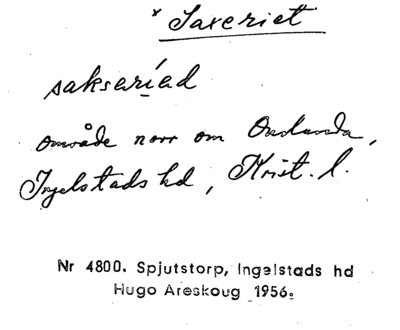 x Saxeriet
sakseríad
område norr om Onslunda,
Ingelstads hd, Krist. l.
Nr 4800. Spjutstorp, Ingelstads hd
Hugo Areskoug 1956.